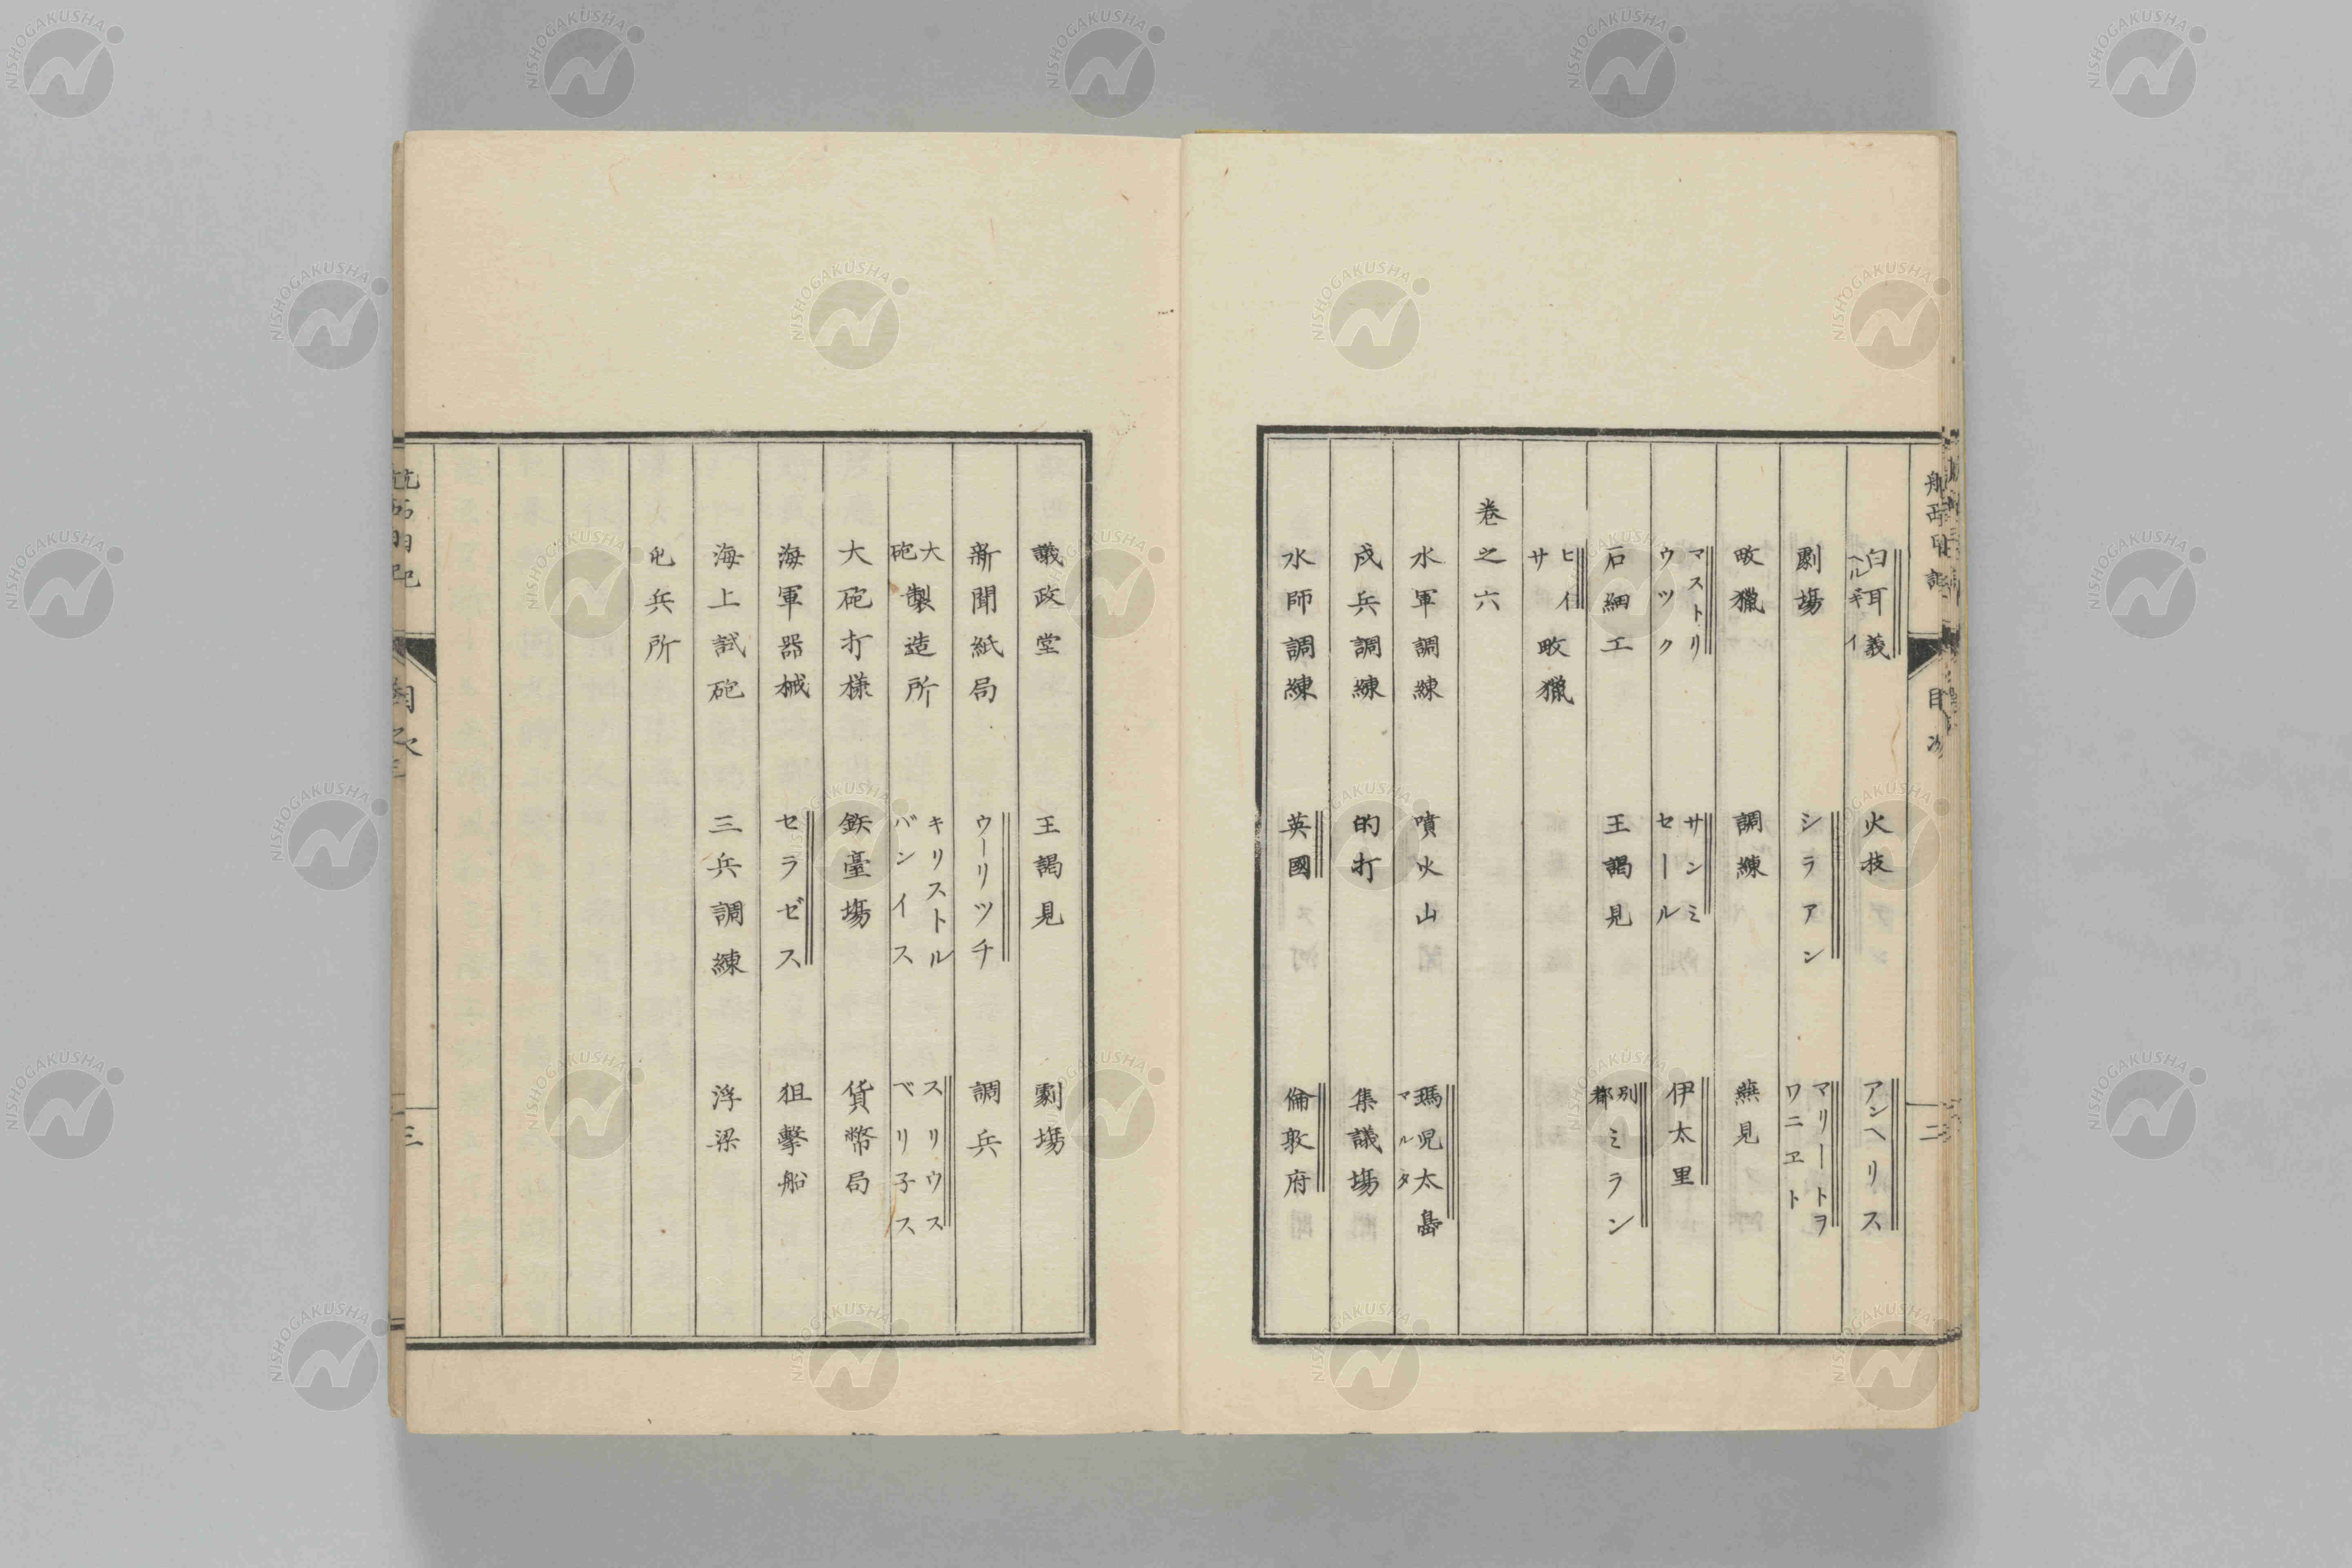 航西日記
目次
二
白耳義 ヘルギイ 火技 アンヘリス
劇場 シラアン マリートヲワニヱト
畋獵 調練 燕見
マストリウツク サンミセール 伊太里
石細工 王謁見 別都ミラン
ヒイサ畋獵
卷之六
水軍調練 噴火山 瑪児太島 マルタ
戍兵調練 的打 集議場
水師調練 英國 倫敦府
議政堂 王謁見 劇場
新聞紙局 ウーリツチ 調兵
大砲製造所 キリストルバンイス スリウスベリ子ス
大砲打様 鉄臺場 貨幣局
海軍器械 セラゼス 狙擊船
海上試砲 三兵調練 浮梁
兵所
航西日記
目次
三
NISHOGAKUSHA